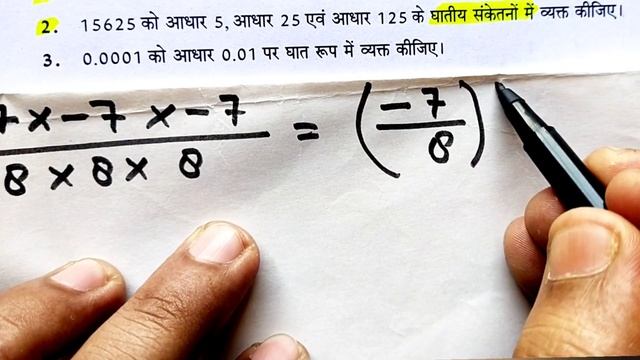 2. 15625 को आधार 5, आधार 25 एवं आधार 125 के घातीय संकेतनों में व्यक्त कीजिए।
3. 0.0001 को आधार 0.01 पर घात रूप में व्यक्त कीजिए।
7 × -7 × -7 = ( -7 )
8 × 8 × 8 8